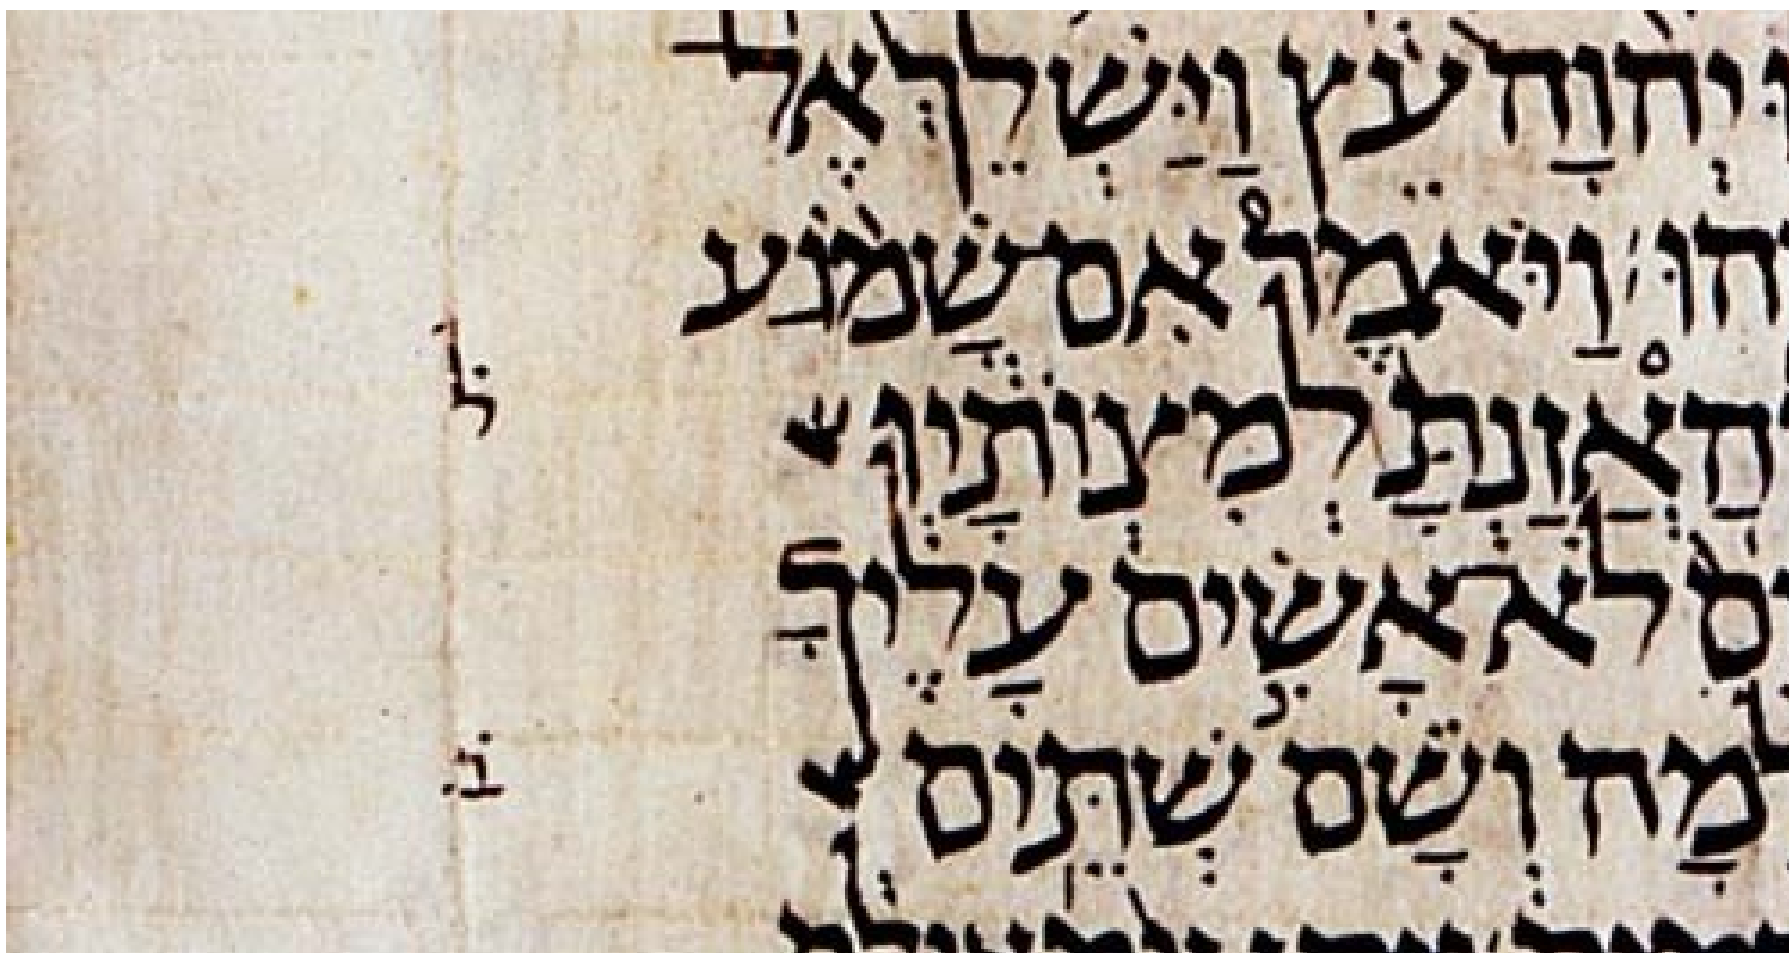 יְהוָה עֵץ וַיַּשְׁלֵךְ אֶל
הוּ׃ וַיֹּאמֶר אִם שָׁמוֹעַ
הַאֲזַנְתָּ לְמִצְוֹתָיו
ִים לֹא אָשִׂים עָלֶיךָ
לִמָה וְשָׁם שְׁתֵּים
ל
ב